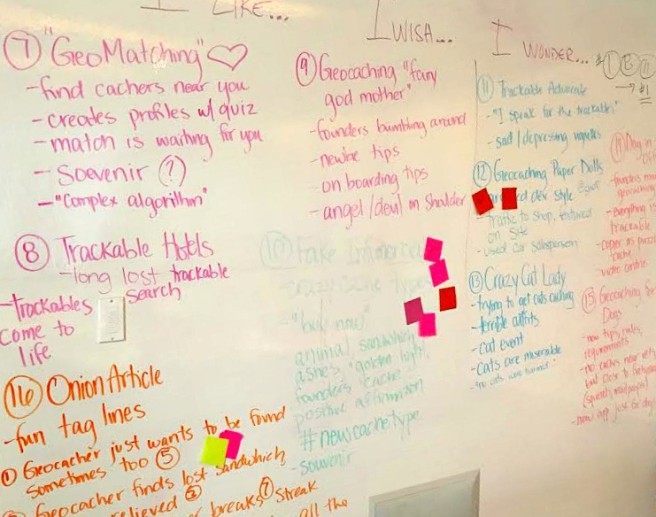 I LIKE...
⑦ "GeoMatching" ♡
-find cachers near you
-creates profiles w/ quiz
-match is waiting for you
-Souvenir (?)
-"Complex algorithm"
⑧ Trackable Hotels
-long lost trackable
search
-trackables
come to
life
⑯ Onion Article
-fun tag lines
① Geocacher just wants to be found
Sometimes too ⑤
Geocacher finds lost sandwich
relieved ②
breaks streak
all the
I WISH...
⑨ Geocaching "fairy
god mother"
-founders bumbling around
-newbie tips
-on boarding tips
-angel/devil on Shoulder
⑩ Fake Infomercial
crazy cache types
"buy now"
animal, sandwich
ashes, "golden light,
founders' cache
positive affirmation
#newcachetype
-souvenir
I WONDER...
⑪ Trackable Advocate
-"I speak for the trackables"
-sad/depressing
⑫ Geocaching Paper Dolls
dev style
to shop, featured
on site
-used car salesperson
⑬ Crazy Cat Lady
-trying to get cats caching
-terrible outfits
-cat event
-cats are miserable
-"no cats was harmed"
#1
geocaching
-everything is
trackable
⑮ Geocaching for
Dogs
-new tips, rules,
requirements
-no caches near
-new app just for dogs